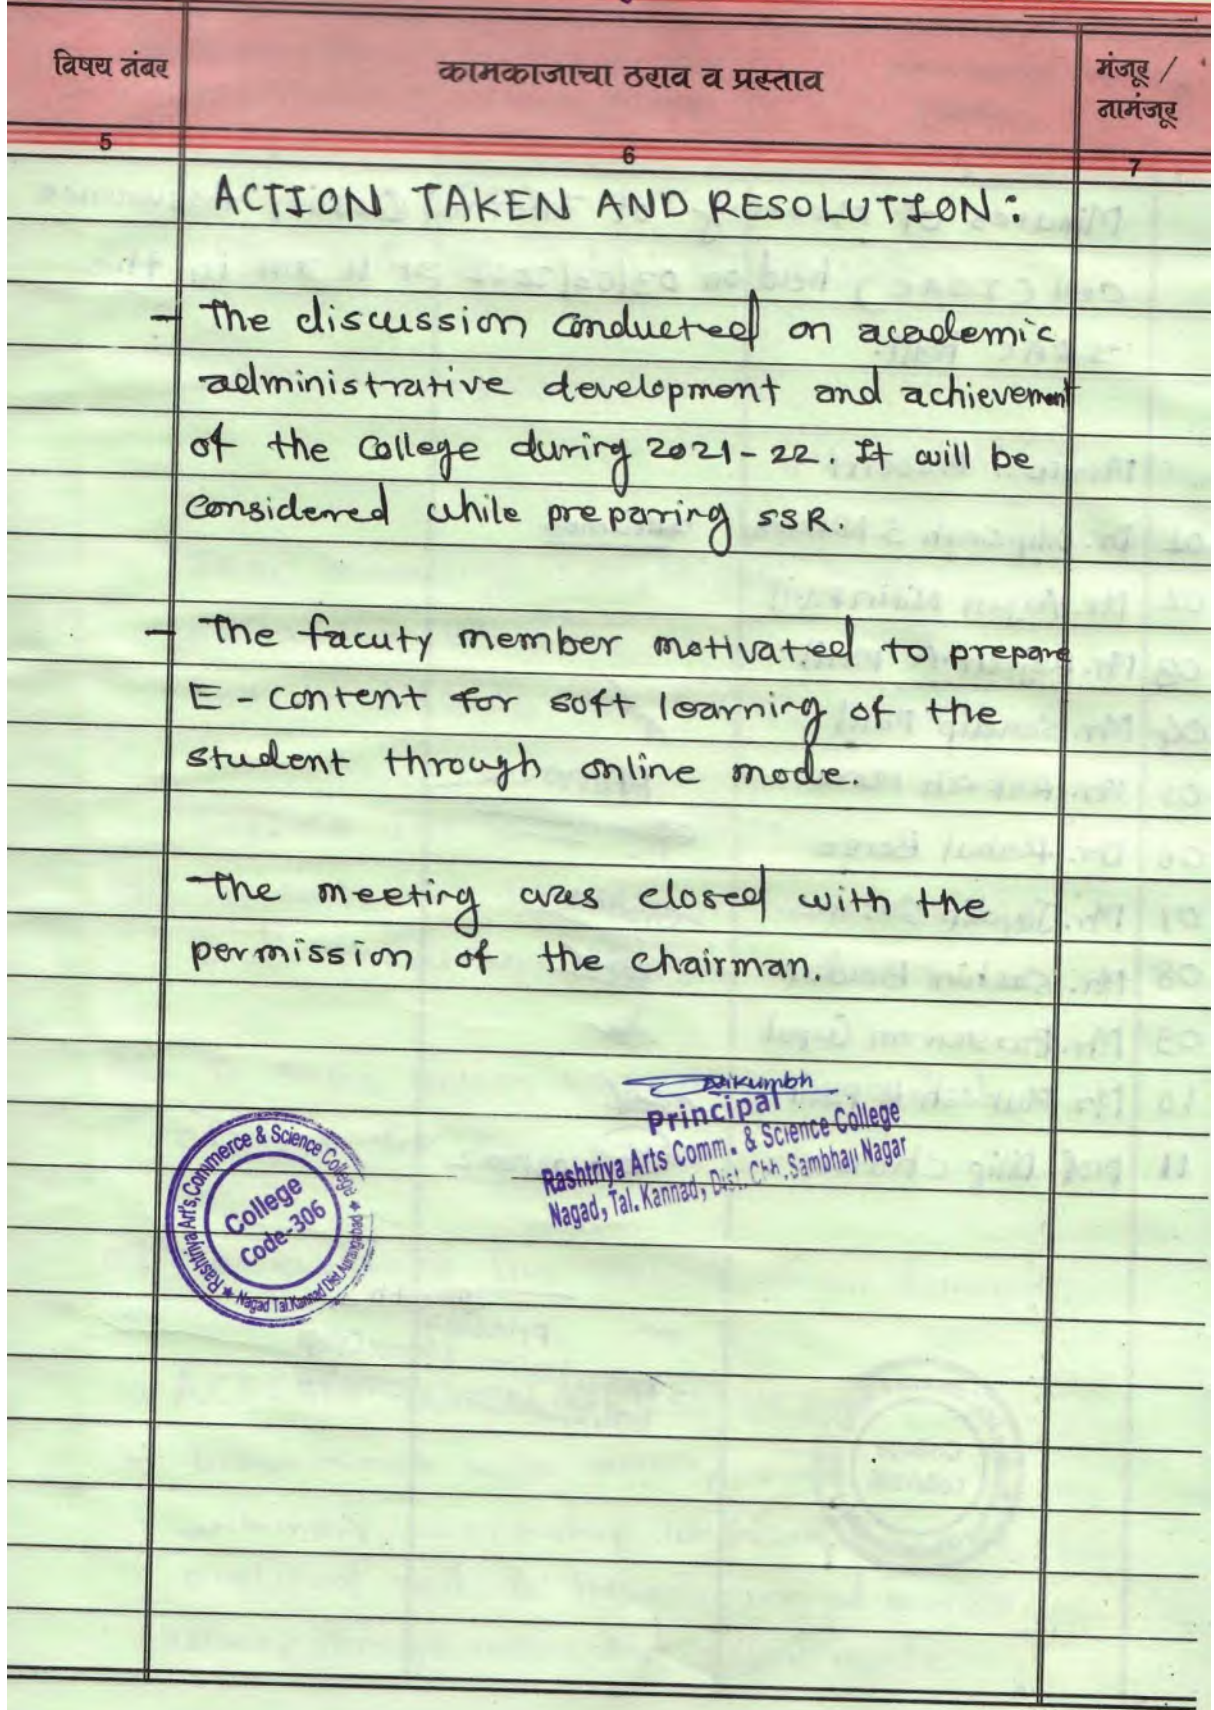 विषय नंबर
कामकाजाचा ठराव व प्रस्ताव
मंजूर /
नामंजूर
5
6
7
ACTION TAKEN AND RESOLUTION:
- The discussion conducted on academic
administrative development and achievement
of the college during 2021-22. It will be
considered while preparing SSR.
- The facuty member motivated to prepare
E-content for soft learning of the
student through online mode.
The meeting was closed with the
permission of the chairman.
Nikumbh
Principal
Rashtriya Arts Comm. & Science College
Nagad, Tal. Kannad, Dist. Chh. Sambhaji Nagar
Rashtriya Art's, Commerce & Science College
College
Code-306
Nagad Tal. Kannad Dist. Aurangabad